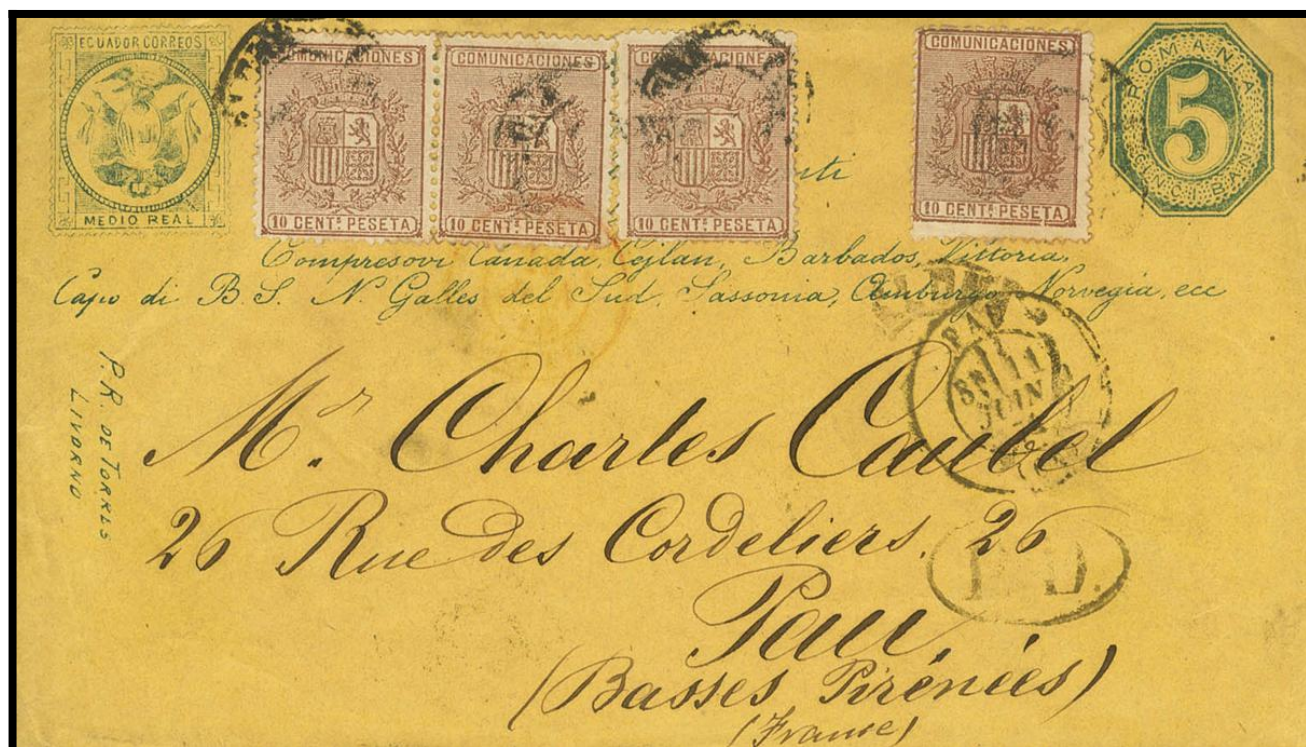 ECUADOR CORREOS
MEDIO REAL
COMUNICACIONES
10 CENT.s PESETA
COMUNICACIONES
10 CENT.s PESETA
COMUNICACIONES
10 CENT.s PESETA
COMUNICACIONES
10 CENT.s PESETA
ROMANIA
5
CINCI BANI
Compresovi Canada, Cejlan, Barbados, Vittoria,
Capo di B. S. N. Galles del Sud, Sassonia, Amburgo, Norvegia, ecc
P. R. DE TORRES
LIVORNO
PAU
11
JUIN
Mr. Charles Caubel
26 Rue des Cordeliers, 26
P.D.
Pau
(Basses Pirénées)
(France)